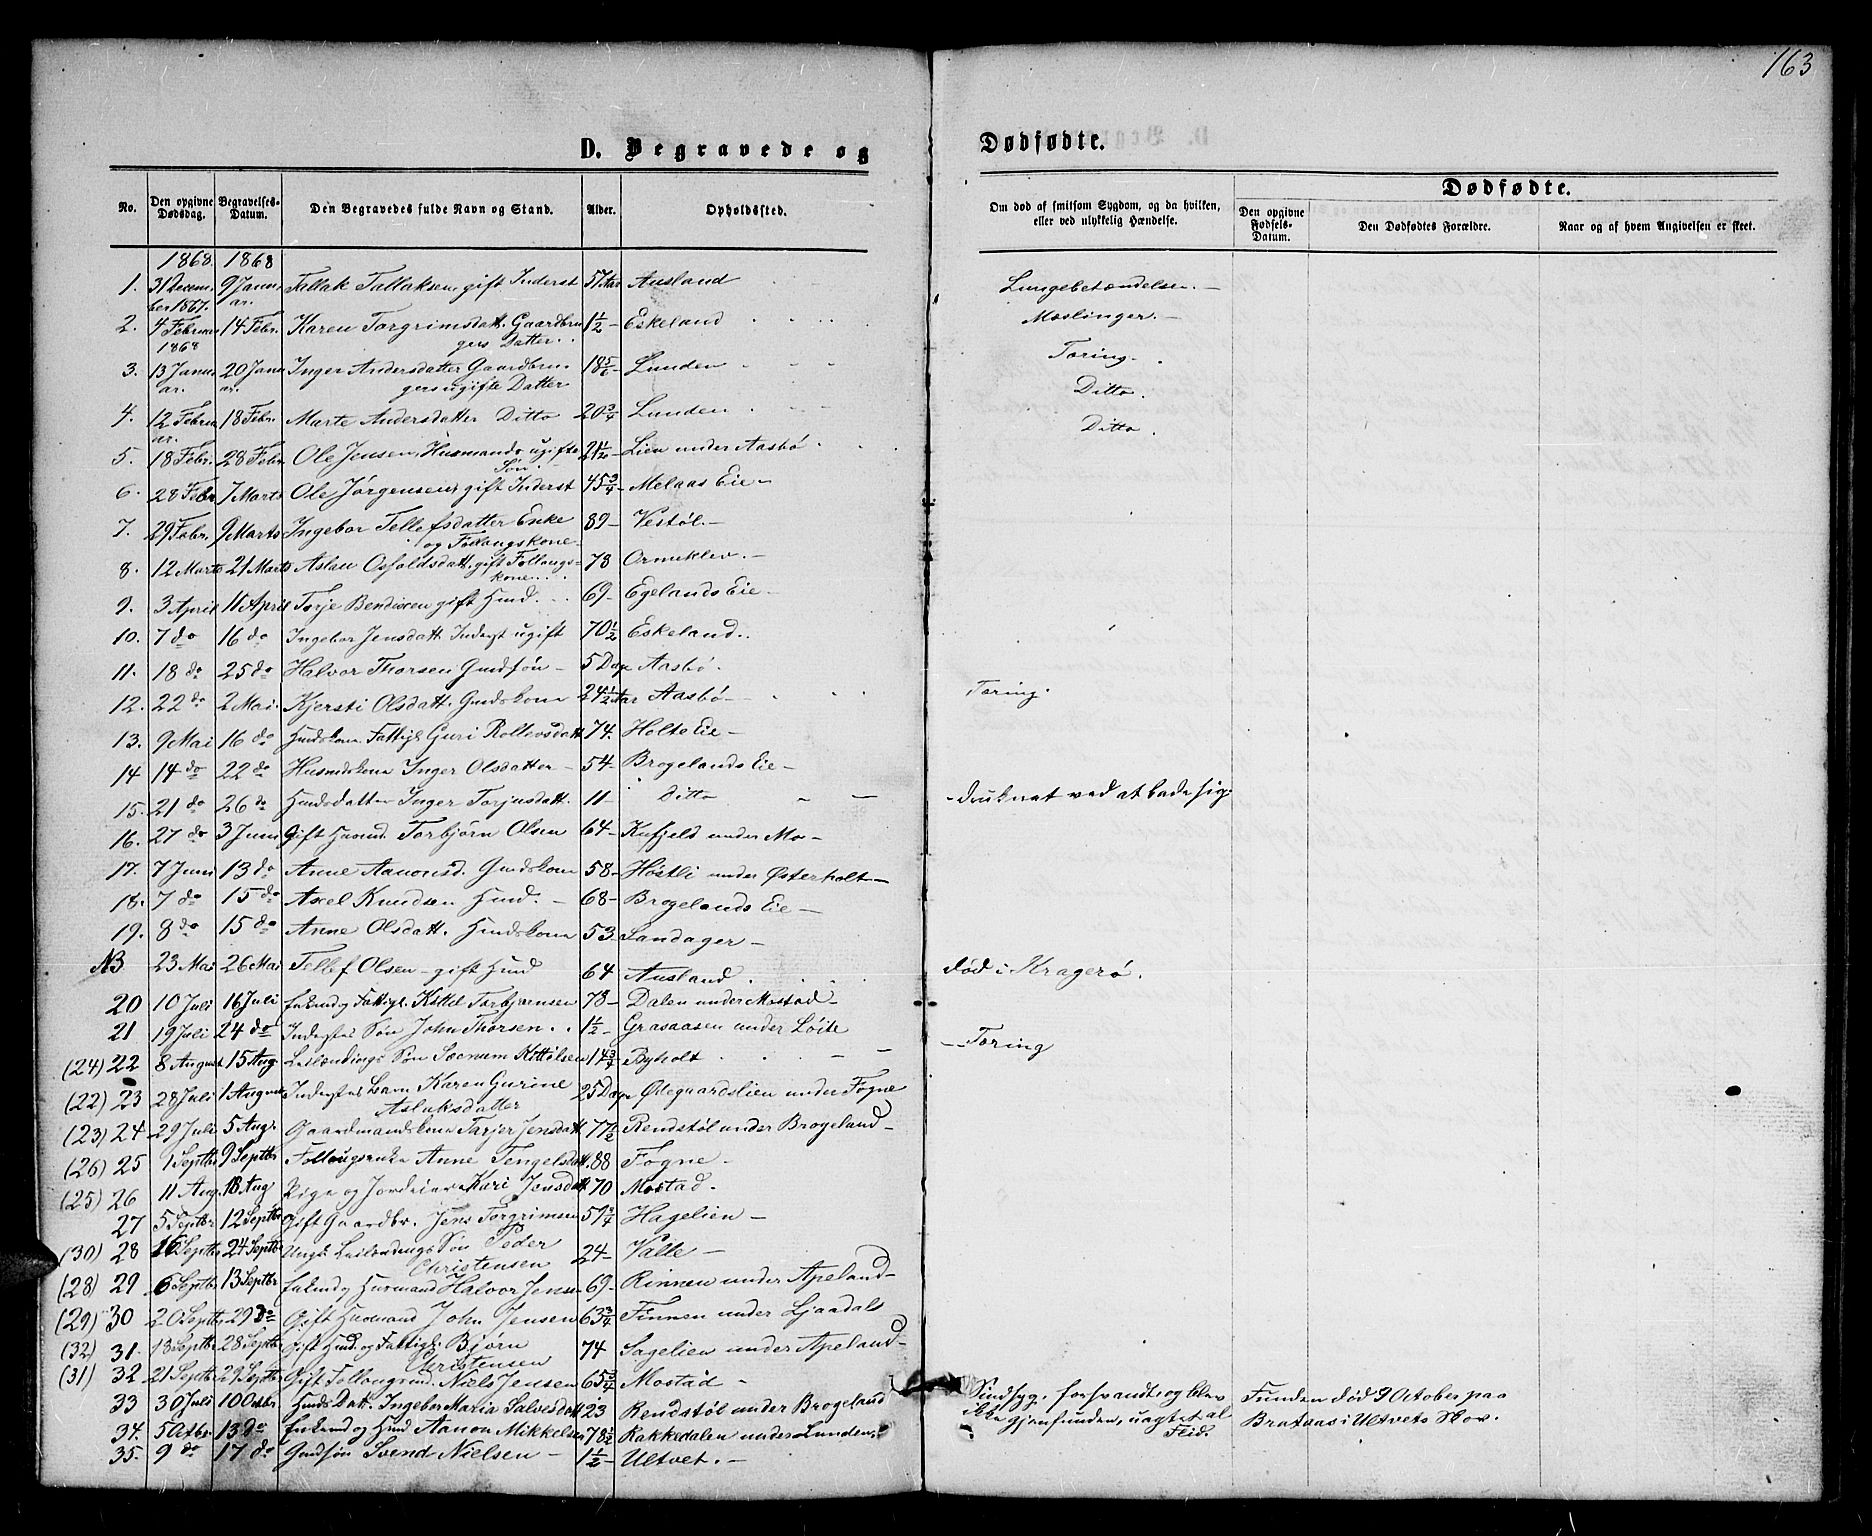 163
D. Begravede og Dødfødte.
No. Den opgivne Dødsdag. Begravelses-Datum. Den Begravedes fulde Navn og Stand. Alder. Opholdssted. Om død af smitsom Sygdom, og da hvilken, eller ved ulykkelig Hændelse. Dødfødte. Den opgivne Fødsels-Datum. Den Dødfødtes Forældre. Naar og af hvem Angivelsen er skeet.
1868 1868
1. 31 Decem- 9 Janu- Tallak Tallaksen, gift Inderst 57 Aar Ausland Lungebetændelse.
ber 1867. ar.
2. 4 Februar 14 Febr. Karen Torgrimsdatt. Gaardbru- 1½ Eskeland Mæslinger.
1868 gers Datter
3. 13 Janu- 20 Janu- Inger Andersdatter Gaardbru- 18 5/6 Lunden Tæring.
ar. ar. gers ugifte Datter
4. 12 Febru- 18 Febr. Marte Andersdatter Ditto 20¾ Lunden. Ditto.
ar.
5. 18 Febr. 28 Febr. Ole Jensen, Husmands ugifte 21½ Lien under Aasbø. Ditto.
Søn.
6. 28 Febr 7 Marts Ole Jørgensen, gift Inderst 45¾ Melaas Eie
7. 29 Febr. 9 Marts Ingebor Tellefsdatter Enke 89 Vestøl.
og Føllougskone
8. 12 Marts 21 Marts Aslau Osfoldsdatt. gift Føllougs- 78 Ormeklev.
kone
9. 3 April 11 April Torje Bendixen gift Husmd. 69 Egelands Eie
10. 7 do 16 do Ingebor Jensdatt. Inderst ugift 70½ Eskeland.
11. 18 do 25 do Halvor Thorsen Gmdssøn 5 Dage Aasbø.
12. 22 do 2 Mai. Kjersti Olsdatt. Gmdskone 24½ Aar Aasbø Tæring.
13. 9 Mai 16 do Husmdskone Fattigl. Guri Rollevsdatt 74. Holte Eie
14 14 do 22 do Husmdskone Inger Olsdatter 54 Brogelands Eie
15. 21 do 26 do Husmdsdatter Inger Torjusdatt. 11 Ditto druknet ved at bade sig.
16. 27 do 3 Juni Gift Husmd. Torbjørn Olsen 64 Kufjeld under Mo
17. 7 Juni 13 do Anne Aanonsd. Gmdskone 58 Høstli under Østerholt
18. 7 do 15 do Axel Knudsen Husmd. 68 Brogelands Eie
19. 8 do 15 do Anne Olsdatt. Husmdskone 53 Sandager
NB 23 Mai 26 Mai Tellef Olsen gift Husmd 64 Ausland død i Kragerø.
20 10 Juli 16 Juli Enkemd og Fattigl. Kittil Torbjørnsen 78 Dalen under Mostad
21 19 Juli 24 do Inderstes Søn John Thorsen. 1½ Grasaasen under Løite
(24) 22 8 August 15 Aug. Leilændings Søn Søemum Kittilsen 14¾ Byholt Tæring
(22) 23 28 Juli 1 August Inderstes Barn Karen Gurine 25 Dage Ødegaardslien under Fogne
Aslaksdatter
(23) 24 29 Juli 5 Aug. Gaardmandskone Tarjer Jensdatt. 77½ Rendstøl under Brogeland
(26) 25 1 Septbr 9 Septbr Føllougsenke Anne Tengelsdatt. 88 Fogne
(25) 26 11 Aug. 18 Aug Pige og Jordeiere Kari Jensdatt 70 Mostad.
27 5 Septbr 12 Septbr Gift Gaardbr. Jens Torgrimsen 51¾ Hagelien
(30) 28 16 Septbr 24 Septbr Ungk. Leilændings Søn Peder 24 Valle
Christensen
(28) 29 6 Septbr 13 Septbr Enkemd og Husmand Halvor Jensen 69 Rinnen under Apeland
(29) 30 20 Septbr 29 do Gift Husmand John Jensen 63¾ Finnen under Ljaadals
(32) 31. 18 Septbr 28 Septbr Gift Husmd. og Fattigl. Bjørn 74 Sagelien under Apeland
Christensen
(31) 32. 21 Septbr 29 Septbr Gift Føllougmd. Niels Jensen 65¾ Mostad
33 30 Juli 10 Octbr. Husmds Datt. Ingebor Maria Salvesdatt 23 Rendstøl under Brogeland Sindssyg, forsvandt og blev Funden død 9 October paa
ikke gjenfunden, uagtet al Brataas i Ultvets Skov.
Flid.
34. 5 Octbr. 13 do Enkemd og Husmd Aanon Mikkelsen 78½ Rakkedalen under Lunden.
35. 9 do 17 do Gmdssøn Svend Nielsen 1½ Ultvet.